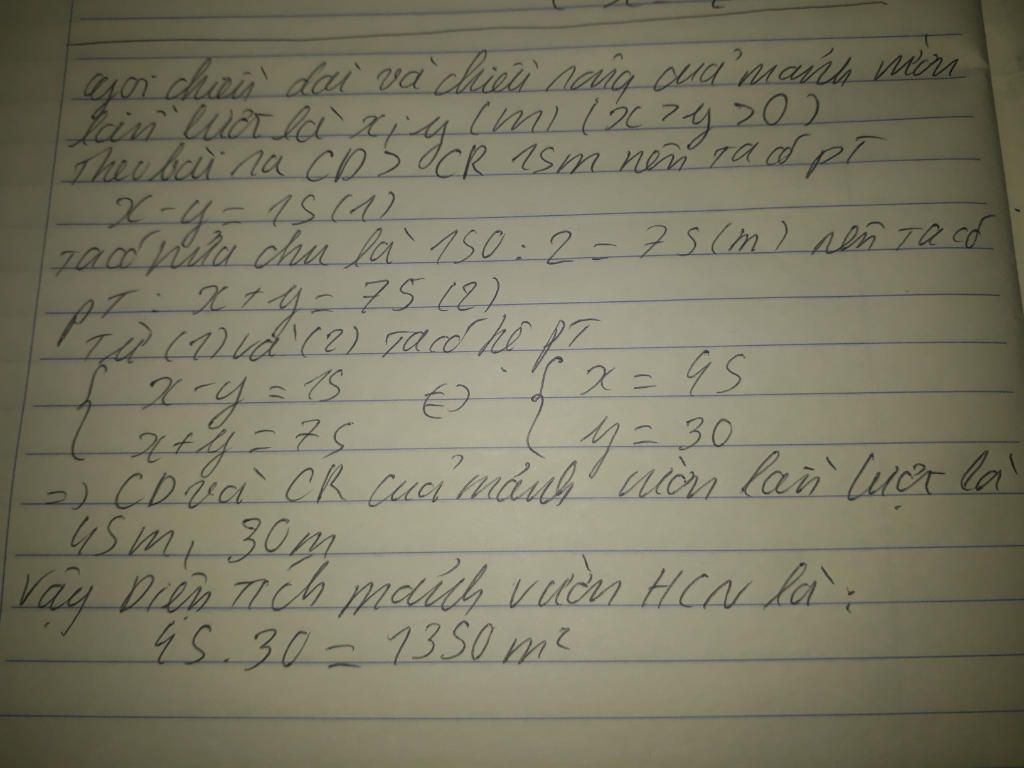 Gọi chiều dài và chiều rộng của mảnh vườn
lần lượt là x; y (m) (x > y > 0)
Theo bài ra CD > CR 15m nên ta có PT
x - y = 15 (1)
Ta có nửa chu là 150 : 2 = 75 (m) nên ta có
PT : x + y = 75 (2)
Từ (1) và (2) ta có hệ PT
{ x - y = 15 <=> { x = 45
{ x + y = 75 { y = 30
=) CD và CR của mảnh vườn lần lượt là
45m, 30m
Vậy Diện tích mảnh vườn HCN là :
45 . 30 = 1350 m²